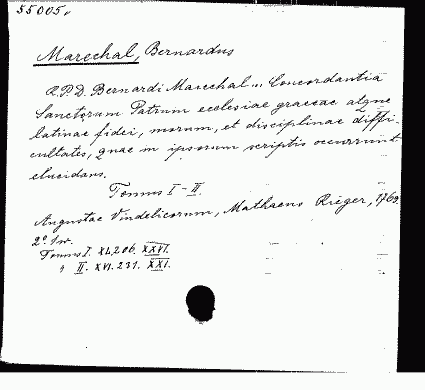 55005.
Marechal, Bernardus
R.P.D. Bernardi Marechal... Concordantia
Sanctorum Patrum ecclesiae graecae atque
latinae fidei, morum, et disciplinae diffi-
cultates, quae in ipsorum scriptis occurrunt
elucidans.
Tomus I-II.
Augustae Vindelicorum, Mathaeus Rieger, 1769
2° 1 w.
Tomus I. XL, 206. XXVI.
II. XVI. 231. XXI.